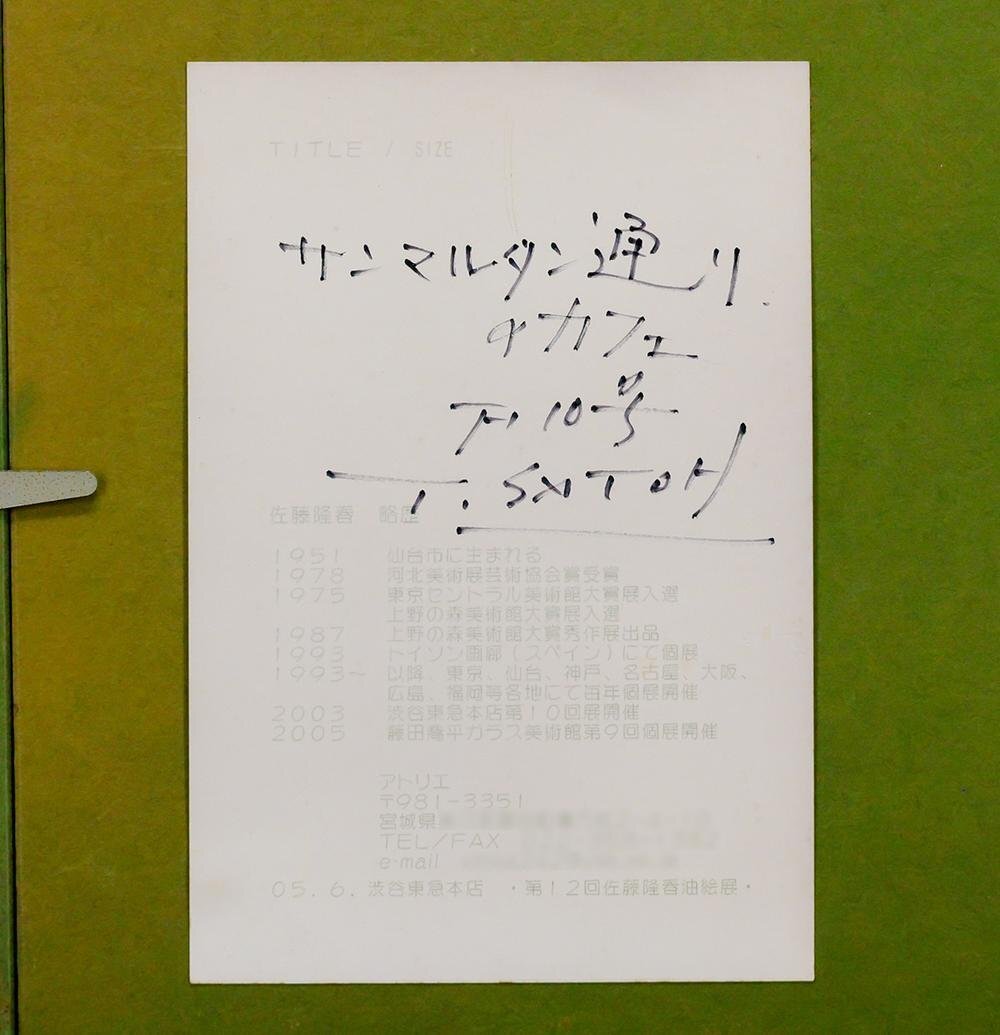 TITLE / SIZE
サンマルタン通り
のカフェ
F10号
T. SATOH
佐藤隆春 略歴
1951 仙台市に生まれる
1978 河北美術展芸術協会賞受賞
1975 東京セントラル美術館大賞展入選
上野の森美術館大賞展入選
1987 上野の森美術館大賞秀作展出品
1993 トイソン画廊(スペイン)にて個展
1993~ 以降、東京、仙台、神戸、名古屋、大阪、
広島、福岡等各地にて百年個展開催
2003 渋谷東急本店第10回展開催
2005 藤田喬平ガラス美術館第9回個展開催
アトリエ
〒981-3351
宮城県
TEL/FAX
e-mail
05.6.渋谷東急本店 ・第12回佐藤隆春油絵展・